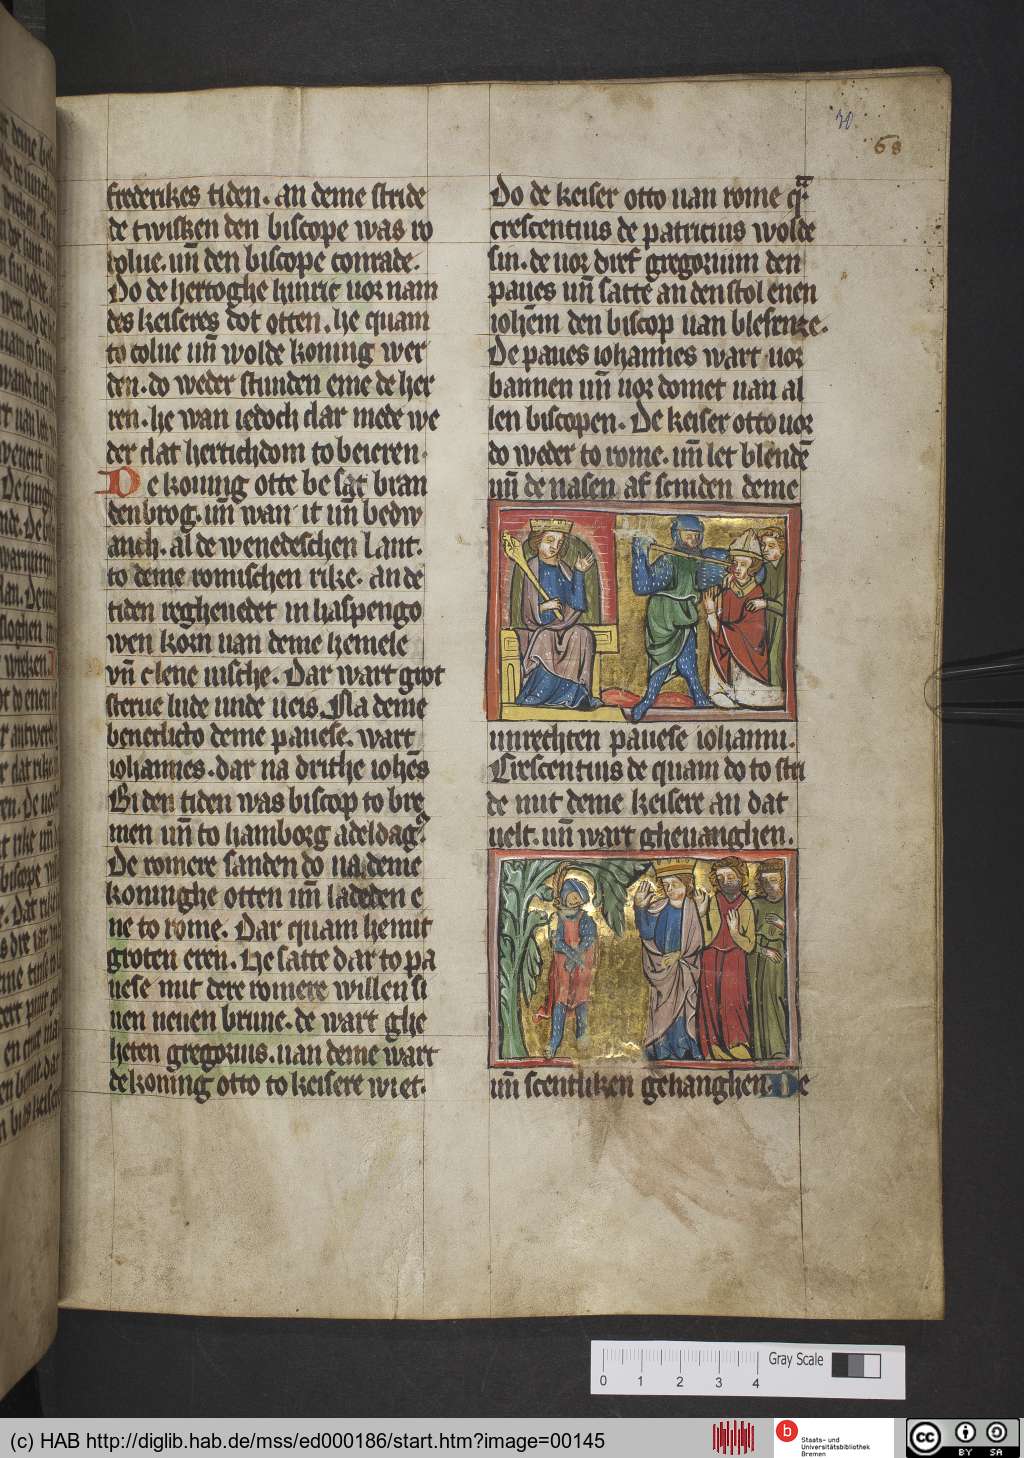 70.
68
frederikes tiden. an deme stride
de twisken den biscope was vo
lolue. un̄ den biscope conrade.
Do de hertoghe hinric vor nam
des keiseres dot otten. he quam
to colne un̄ wolde koning wer
den. do weder stunden eme de her
ren. he wan iedoch dar mede we
der dat hertichdom to beieren.
De koning otte be sat bran
denbrog. un̄ wan it un̄ bedw
anch. al de wenedeschen lant.
to deme romischen rike. an de
tiden reghenedet in haspengo
wen korn van deme hemele
vn̄ clene vische. Dar wart grot
sterue lude unde veis. Na deme
benedicto deme pauese. wart
iohannes. dar na drithe ioh̄es
Bi den tiden was biscop to bre
men un̄ to hamborg adeldag9.
De romere sanden do na deme
koninghe otten un̄ ladeden e
ne to rome. Dar quam he mit
groten eren. He satte dar to pa
uese mit dere romere willen si
nen neuen brune. de wart ghe
heten gregorius. van deme wart
de koning otto to keisere wiet.
Do de keiser otto van rome q̄.
crescentius de patricius wolde
sin. de vor dref gregorium den
paues un̄ satte an den stol enen
ioh̄em den biscop van blesenze.
De paues iohannes wart vor
bannen un̄ vor domet van al
len biscopen. De keiser otto vor
do weder to rome. un̄ let blendē
un̄ de nasen af sniden deme
unrechten pauese iohanni.
Crescentius de quam do to stri
de mit deme keisere an dat
velt. un̄ wart gheuanghen.
un̄ scentliken gehanghen. De
0 1 2 3 4
Gray Scale
(c) HAB http://diglib.hab.de/mss/ed000186/start.htm?image=00145
b
Staats- und
Universitätsbibliothek
Bremen
cc
BY SA